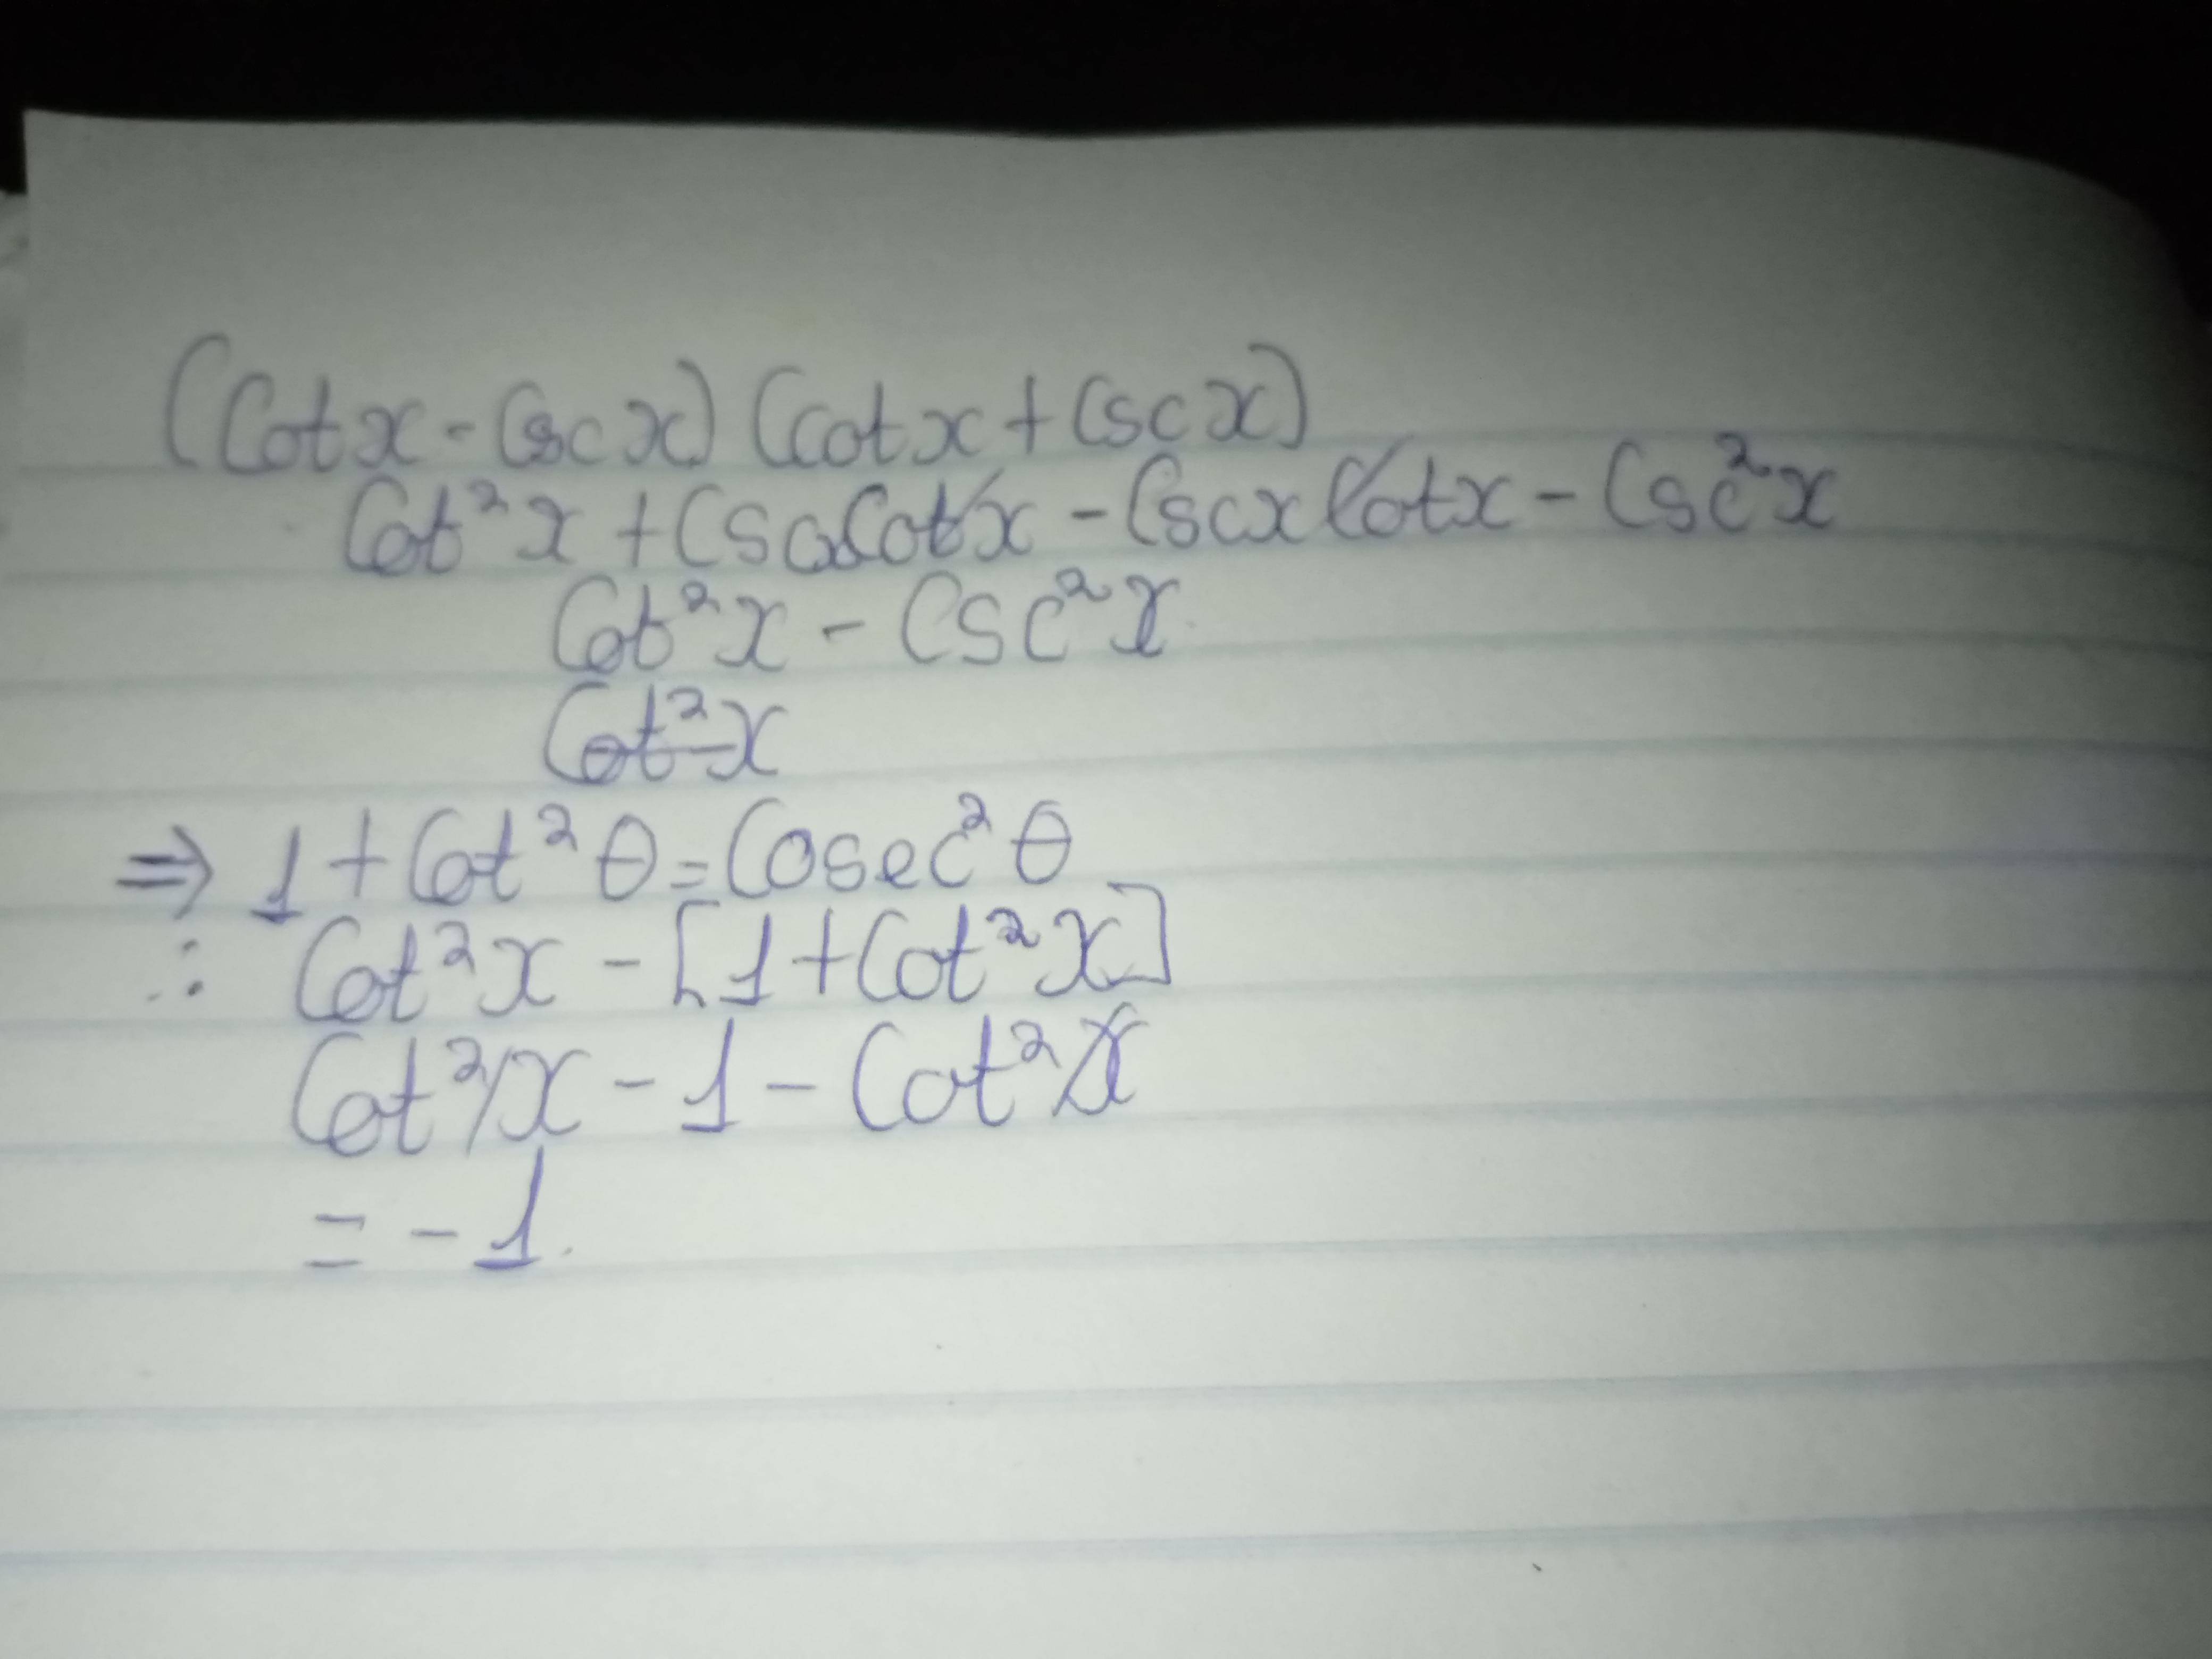 (Cot x - Csc x) (cot x + Csc x)
Cot² x + Csc x Cot x - Csc x Cot x - Csc² x
Cot² x - Csc² x
Cot² x
⇒ 1 + Cot² θ = Cosec² θ
∴ Cot² x - [1 + Cot² x]
Cot² x - 1 - Cot² x
= - 1.